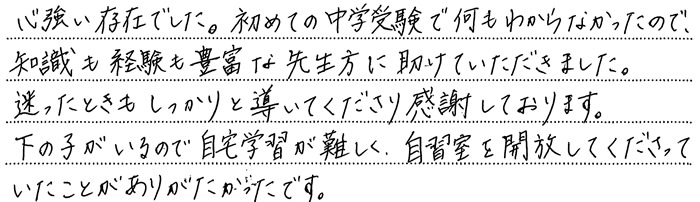 心強い存在でした。初めての中学受験で何もわからなかったので、
知識も経験も豊富な先生方に助けていただきました。
迷ったときもしっかりと導いてくださり感謝しております。
下の子がいるので自宅学習が難しく、自習室を開放してくださって
いたことがありがたかったです。